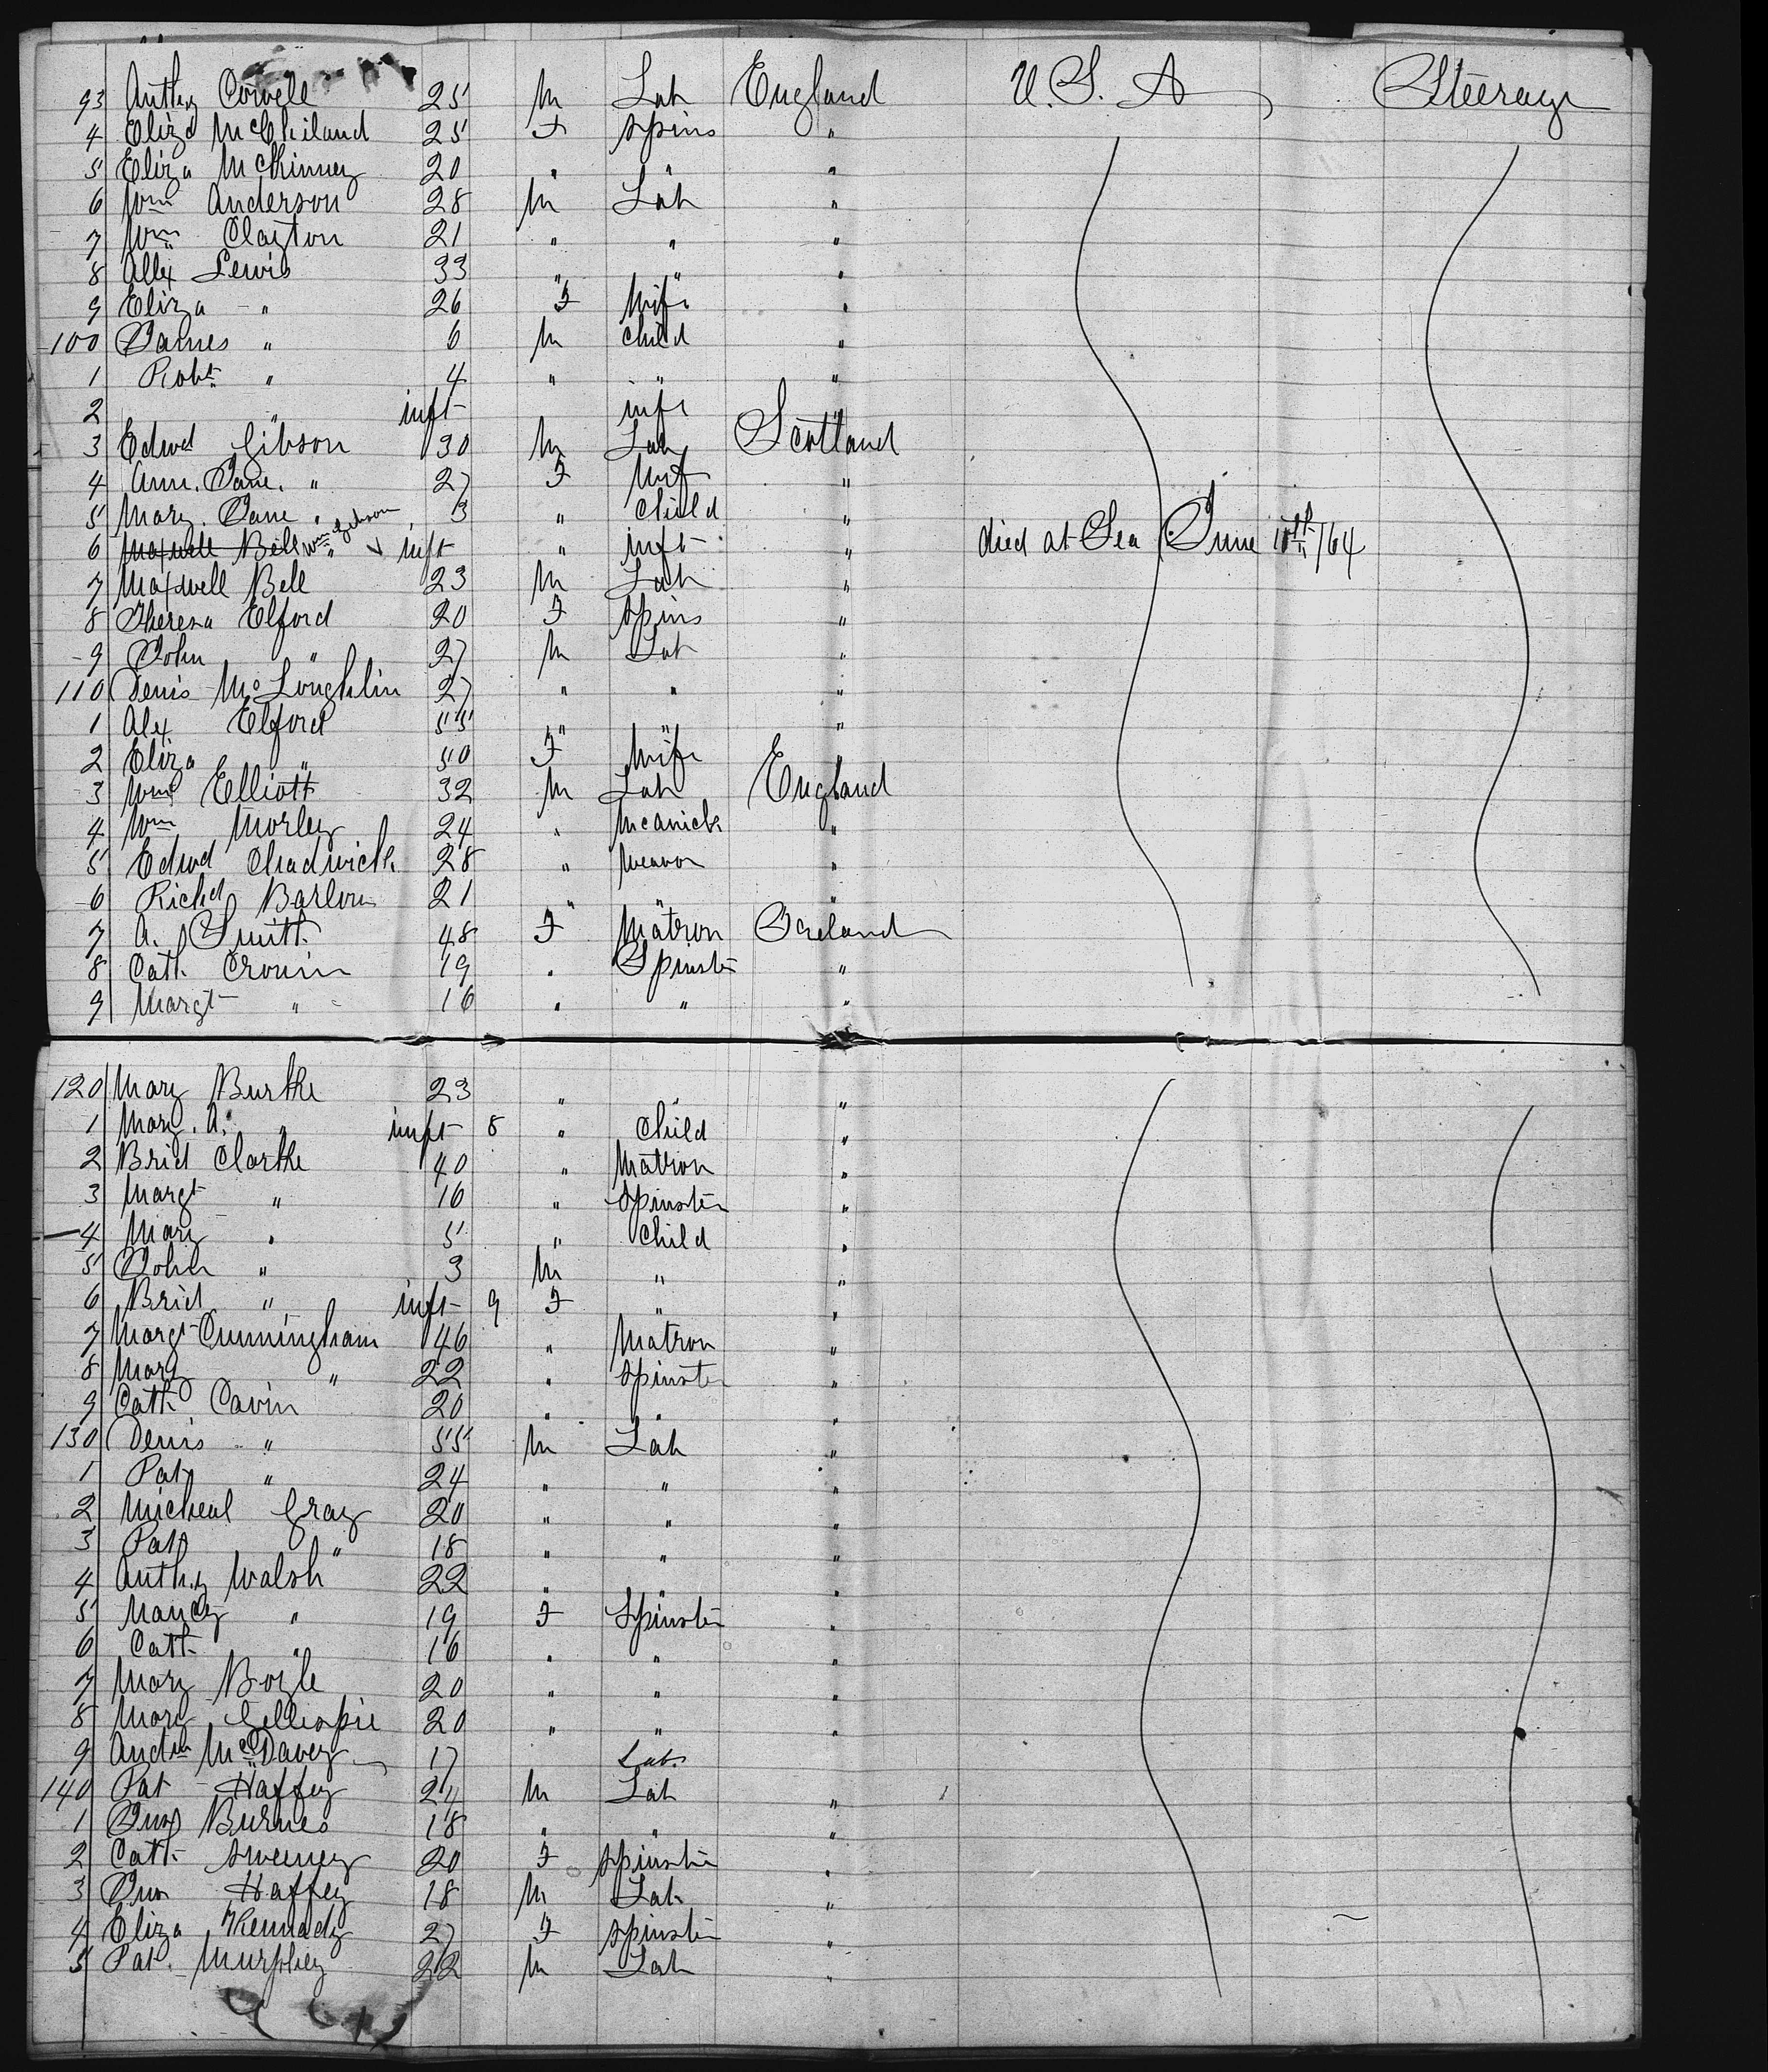 93 Anthy Cowell 25 M Lab England U.S.A Steerage
4 Eliza McChiland 25 F Spins "
5 Eliza McKinney 20 " " "
6 Wm Anderson 28 M Lab "
7 Wm Clayton 21 " " "
8 Alex Lewis 33 " " "
9 Eliza " 26 F Wife "
100 James " 6 M Child "
1 Robt " 4 " " "
2 " inft inft "
3 Edwd Gibson 30 M Lab Scotland
4 Ann. Jane. " 27 F Wife "
5 Mary. Jane " 3 " Child "
6 Maxwell Bell Wm Gibson " inft " inft " died at Sea June 10th/64
7 Maxwell Bell 23 M Lab "
8 Theresa Elford 20 F Spins "
9 John " 27 M Lab "
110 Denis McLoughlin 27 " " "
1 Alex Elford 55 " " "
2 Eliza " 50 F Wife
3 Wm Elliott 32 M Lab England
4 Wm Morley 24 " Mcanick "
5 Edwd Chadwick 28 " Weavor "
6 Richd Barlow 21 " " "
7 A. Smith 48 F Matron Ireland
8 Cath Cronin 19 " Spinster "
9 Margt " 16 " " "
120 Mary Burke 23 " " "
1 Mary. A. " inft 8 " Child "
2 Brid Clarke 40 " Matron "
3 Margt " 16 " Spinster "
4 Mary " 5 " Child "
5 John " 3 M " "
6 Brid " inft 9 F " "
7 Margt Cunningham 46 " Matron "
8 Mary " 22 " Spinster "
9 Cath Cavin 20 " " "
130 Denis " 55 M Lab "
1 Pat " 24 " " "
2 Micheal Gray 20 " " "
3 Pat " 18 " " "
4 Anthy Walsh 22 " " "
5 Nancy " 19 F Spinster "
6 Cath " 16 " " "
7 Mary Boyle 20 " " "
8 Mary Gillespie 20 " " "
9 McDavey 17 Lab
140 Pat Haffey 24 M Lab "
1 Burnes 18 " " "
2 Cath Sweeney 20 F Spinster "
3 Haffey 18 M Lab "
4 Eliza Kennady 27 F Spinster "
5 Pat. Murphey 22 M Lab "